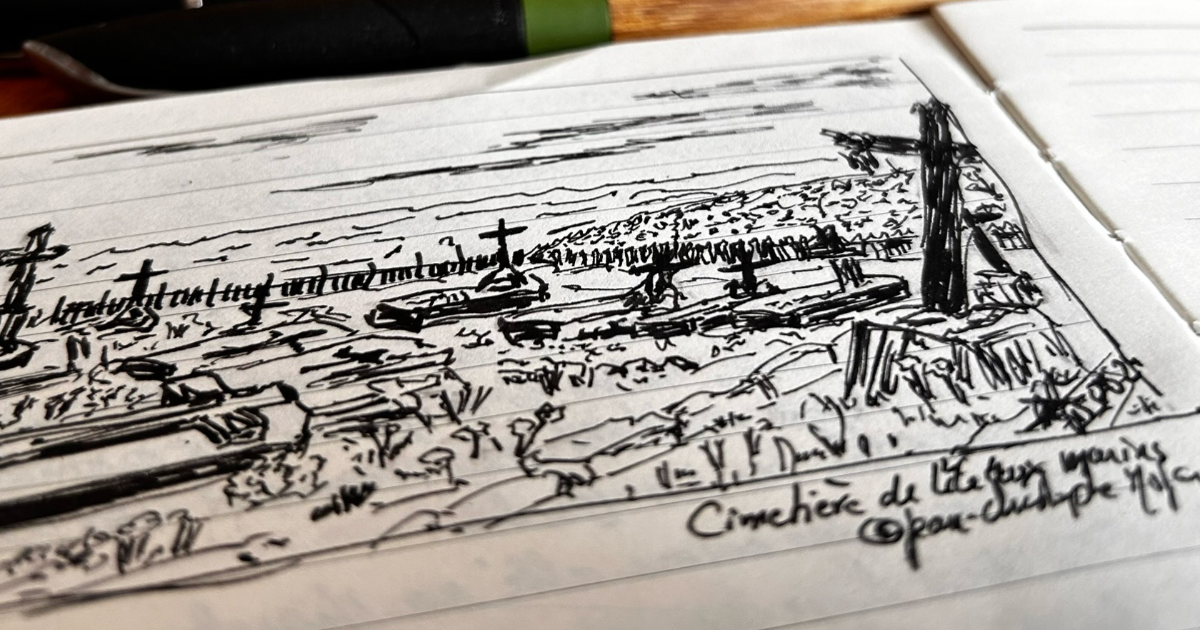 Cimetière de l'île aux marins
©jean-christophe